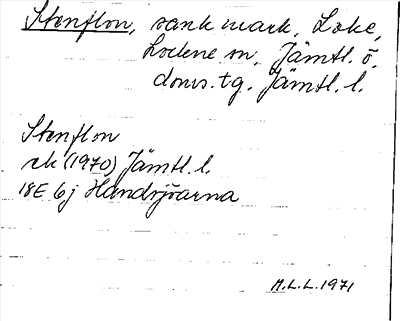 Stenflon, sank mark, Loke,
Lockne sn, Jämtl. ö.
doms.tg. Jämtl. l.
Stenflon
ek (1970) Jämtl. l.
18E 6j Handsjöarna
A.L.L. 1971